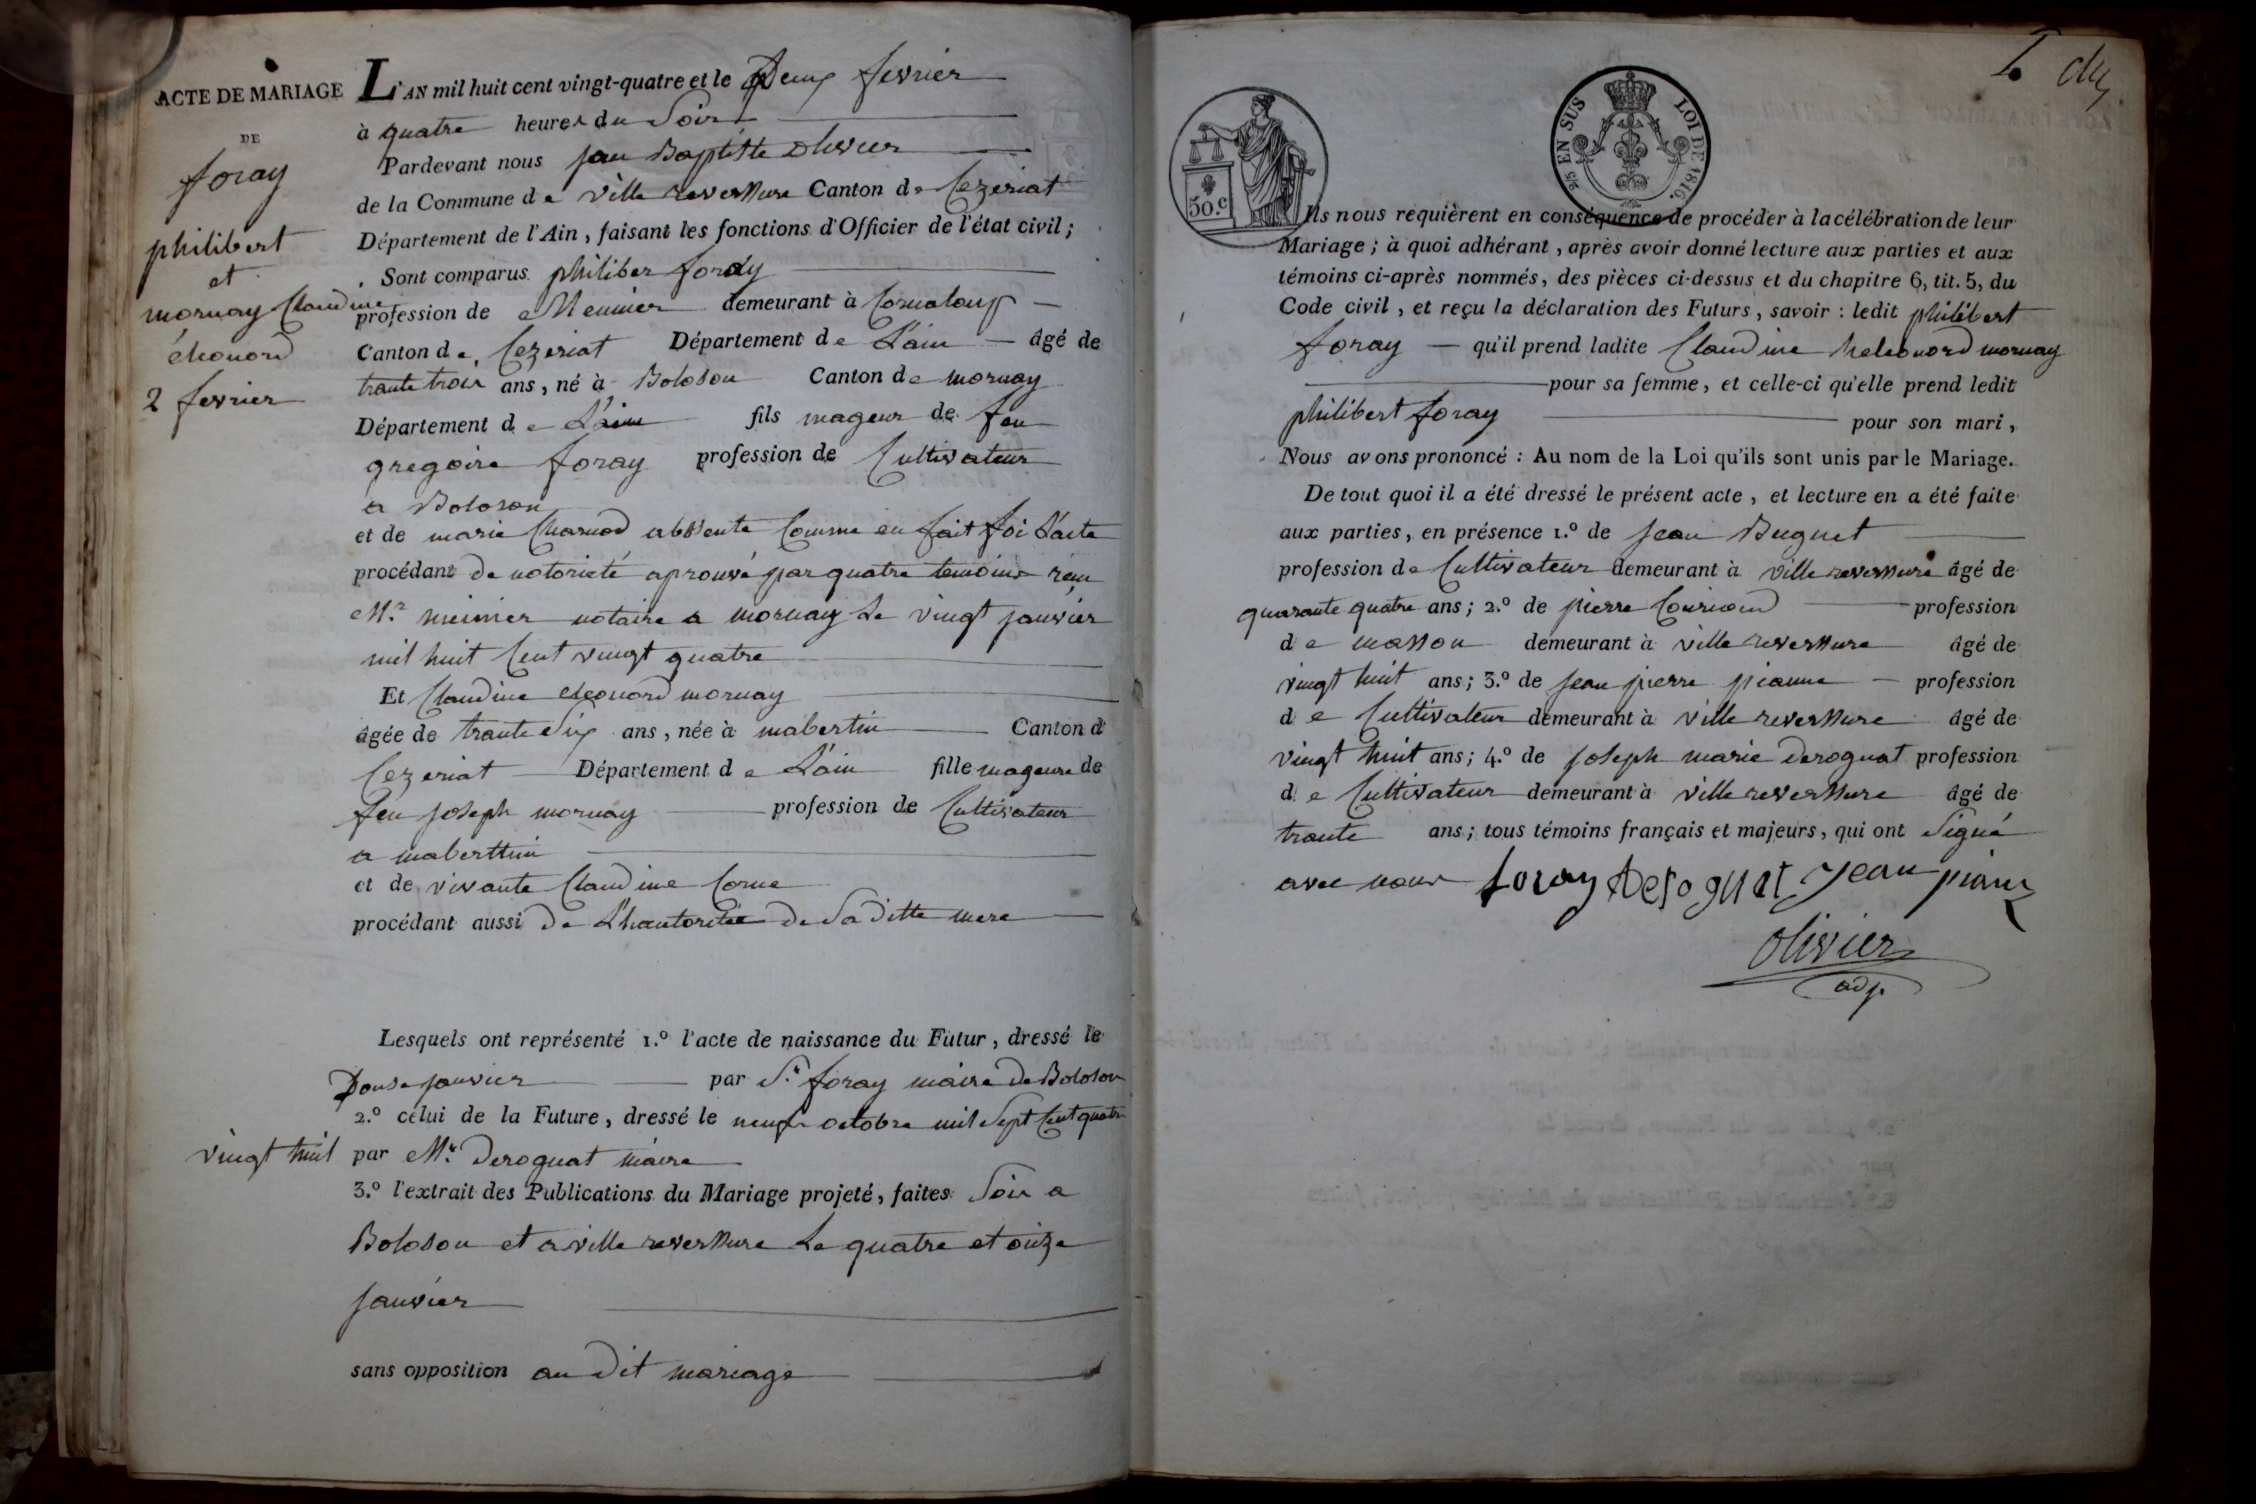 ACTE DE MARIAGE
DE
foray
philibert
et
mornay Claudine
eleonord
2 fevrier
L'AN mil huit cent vingt-quatre et le Deux fevrier
à quatre heures du Soir
Pardevant nous jean Baptiste Olivier
de la Commune de ville reversure Canton de Cezeriat
Département de l'Ain, faisant les fonctions d'Officier de l'état civil;
Sont comparus philiber foray
profession de Meunier demeurant à Cornaloup
Canton de Cezeriat Département de L'ain âgé de
trante trois ans, né à Boloson Canton de mornay
Département de L'ain fils mageur de feu
gregoire foray profession de Cultivateur
a Boloson
et de marie Charnod absente Comme en fait foi L'acte
procédant de notorieté aprouvé par quatre temoins reçu
Mr. meinier notaire a mornay Le vingt janvier
mil huit Cent vingt quatre
Et Claudine eleonord mornay
âgée de trante Six ans, née à mabertin Canton d
Cezeriat Département de L'ain fille mageure de
feu joseph mornay profession de Cultivateur
a maberttin
et de vivante Claudine Corne
procédant aussi de L'hautoritée de Sa ditte mere
Lesquels ont représenté 1.º l'acte de naissance du Futur, dressé le
Douse janvier par Sr. foray maire de Boloson
2.º celui de la Future, dressé le neuf octobre mil Sept Cent quatre
vingt huit par Mr. Deroguat maire
3.º l'extrait des Publications du Mariage projeté, faites Soit a
Boloson et a ville reversure Le quatre et onze
janvier
sans opposition au dit mariage
50.c
2/5 EN SUS LOI DE 1816.
Ils nous requièrent en conséquence de procéder à la célébration de leur
Mariage; à quoi adhérant, après avoir donné lecture aux parties et aux
témoins ci-après nommés, des pièces ci-dessus et du chapitre 6, tit. 5, du
Code civil, et reçu la déclaration des Futurs, savoir : ledit philibert
foray qu'il prend ladite Claudine heleonord mornay
pour sa femme, et celle-ci qu'elle prend ledit
philibert foray pour son mari,
Nous avons prononcé : Au nom de la Loi qu'ils sont unis par le Mariage.
De tout quoi il a été dressé le présent acte, et lecture en a été faite
aux parties, en présence 1.º de jean Buguet
profession de Cultivateur demeurant à ville reversure âgé de
quarante quatre ans; 2.º de pierre profession
de masson demeurant à ville reversure âgé de
vingt huit ans; 3.º de jean pierre pianne profession
de Cultivateur demeurant à ville reversure âgé de
vingt huit ans; 4.º de joseph marie Deroguat profession
de Cultivateur demeurant à ville reversure âgé de
trante ans; tous témoins français et majeurs, qui ont Signé
avec nous foray Deroguat jean
Olivier
adj.